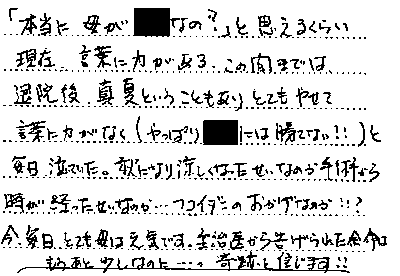 「本当に 母が なの?」と思えるくらい
現在、言葉に力がある。この間までは、
退院後、真夏ということもあり、とてもやせて
言葉に力がなく(やっぱり には勝てない!!)と
毎日泣いていた。秋になり涼しくなったせいなのか手術から
時が経ったせいなのか…フコイダンのおかげなのか!!?
今、毎日、とても母は元気です。主治医から告げられた余命は
もうあと少しなのに……。奇跡を信じます!!